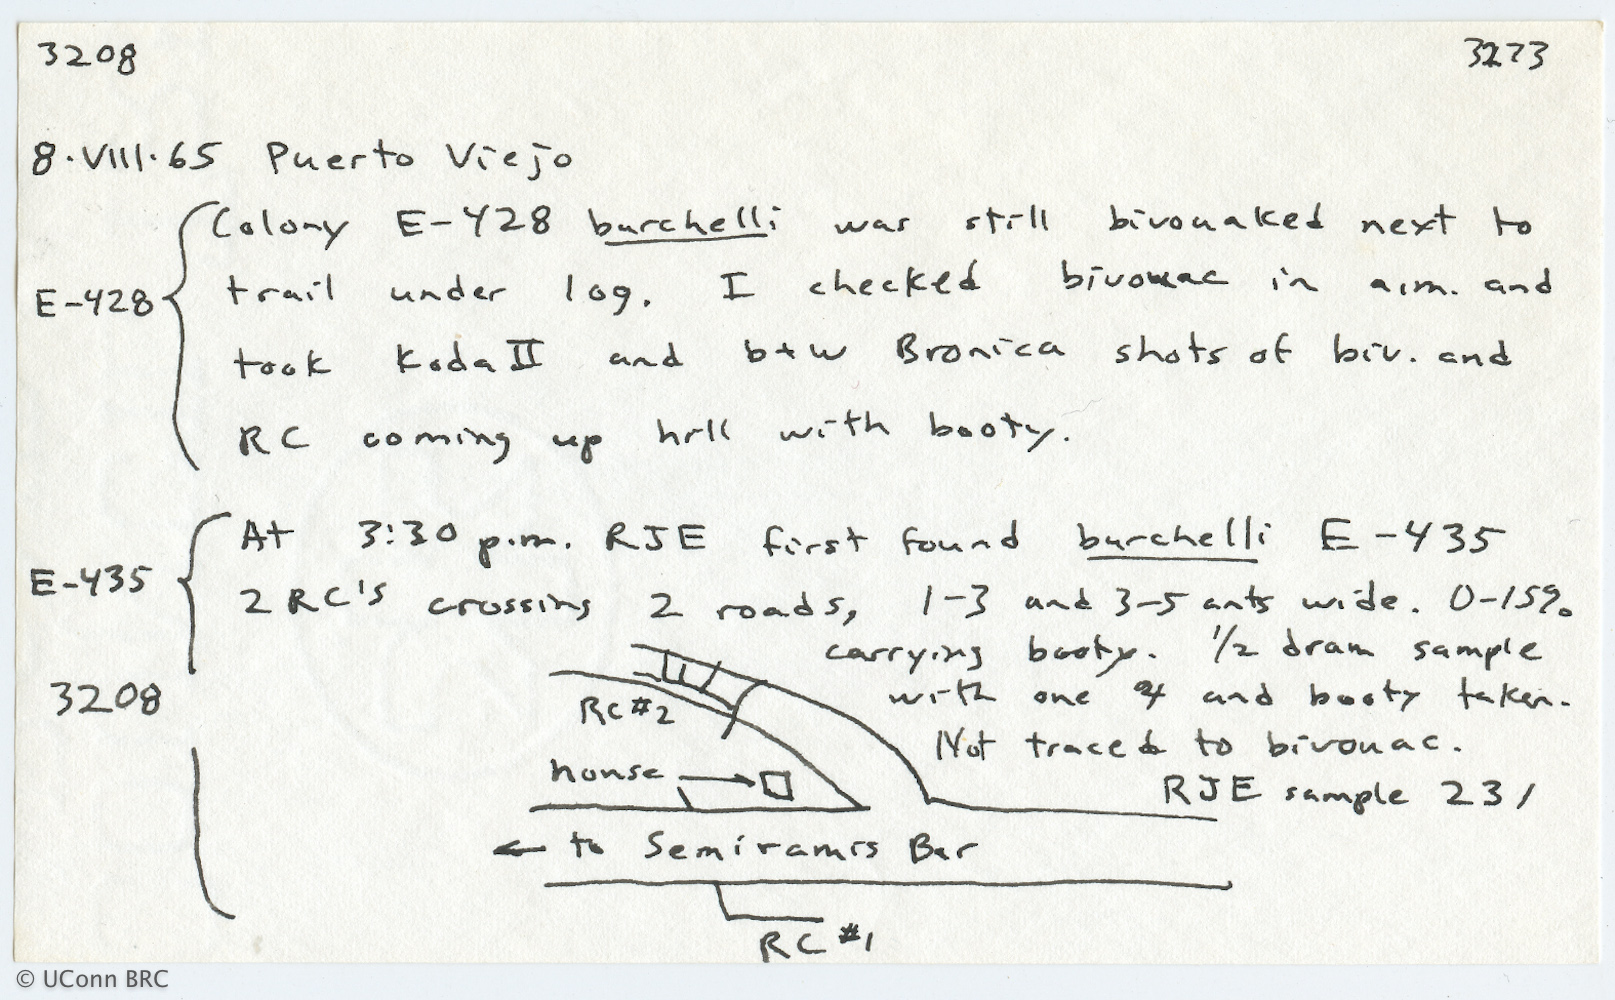 3208 3273
8·VIII·65 Puerto Viejo
Colony E-428 burchelli was still bivouaked next to
E-428 trail under log. I checked bivouac in a.m. and
took Koda II and b+w Bronica shots of biv. and
RC coming up hill with booty.
At 3:30 p.m. RJE first found burchelli E-435
E-435 2 RC's crossing 2 roads, 1-3 and 3-5 ants wide. 0-15%
carrying booty. 1/2 dram sample
3208 with one and booty taken.
RC #2
Not traced to bivouac.
house
RJE sample 231
← to Semiramis Bar
RC #1
© UConn BRC